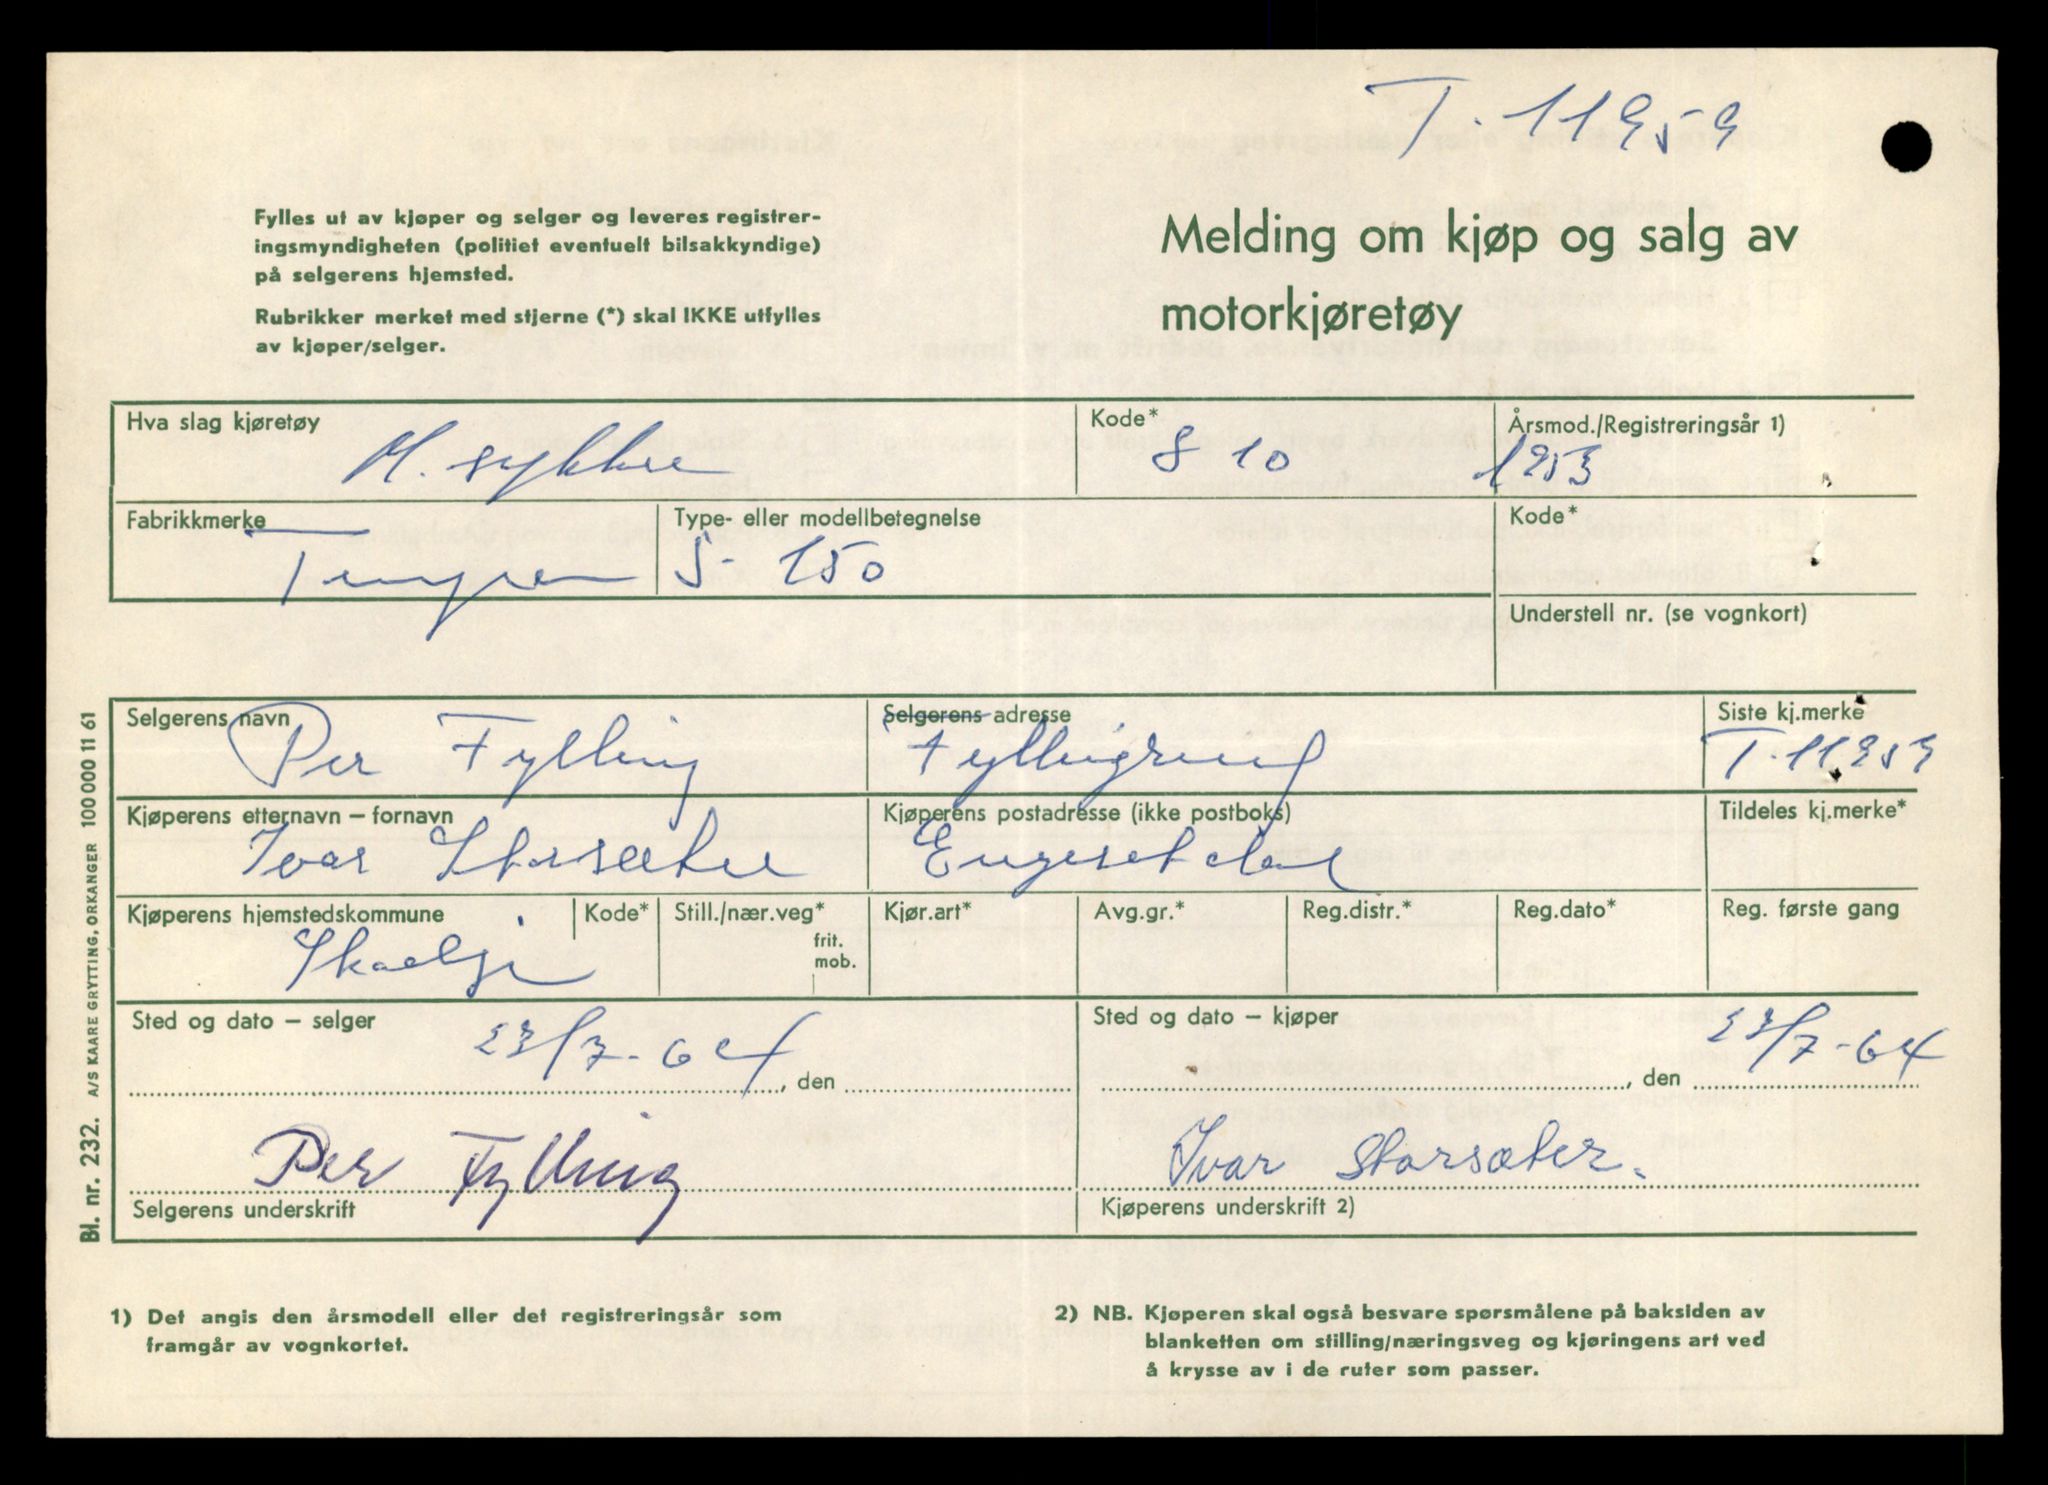 T. 11959
Fylles ut av kjøper og selger og leveres registrer-
ingsmyndigheten (politiet eventuelt bilsakkyndige)
på selgerens hjemsted.
Rubrikker merket med stjerne (*) skal IKKE utfylles
av kjøper/selger.
Melding om kjøp og salg av
motorkjøretøy
Hva slag kjøretøy
M. sykkel
Kode*
810
Årsmod./Registreringsår 1)
1953
Fabrikkmerke
Tempo
Type- eller modellbetegnelse
S- 150
Kode*
Understell nr. (se vognkort)
Selgerens navn
Per Fylling
Selgerens adresse
Siste kj.merke
T. 11959
Kjøperens etternavn – fornavn
Ivar Storsæter
Kjøperens postadresse (ikke postboks)
Engesetdal
Tildeles kj.merke*
Kjøperens hjemstedskommune
Skodje
Kode*
Still./nær.veg*
frit.
mob.
Kjør.art*
Avg.gr.*
Reg.distr.*
Reg.dato*
Reg. første gang
Sted og dato – selger
23/7-64
, den
Sted og dato – kjøper
23/7-64
, den
Per Fylling
Selgerens underskrift
Ivar Storsæter.
Kjøperens underskrift 2)
1) Det angis den årsmodell eller det registreringsår som
framgår av vognkortet.
2) NB. Kjøperen skal også besvare spørsmålene på baksiden av
blanketten om stilling/næringsveg og kjøringens art ved
å krysse av i de ruter som passer.
Bl. nr. 232. A/S KAARE GRYTTING, ORKANGER 100 000 11 61